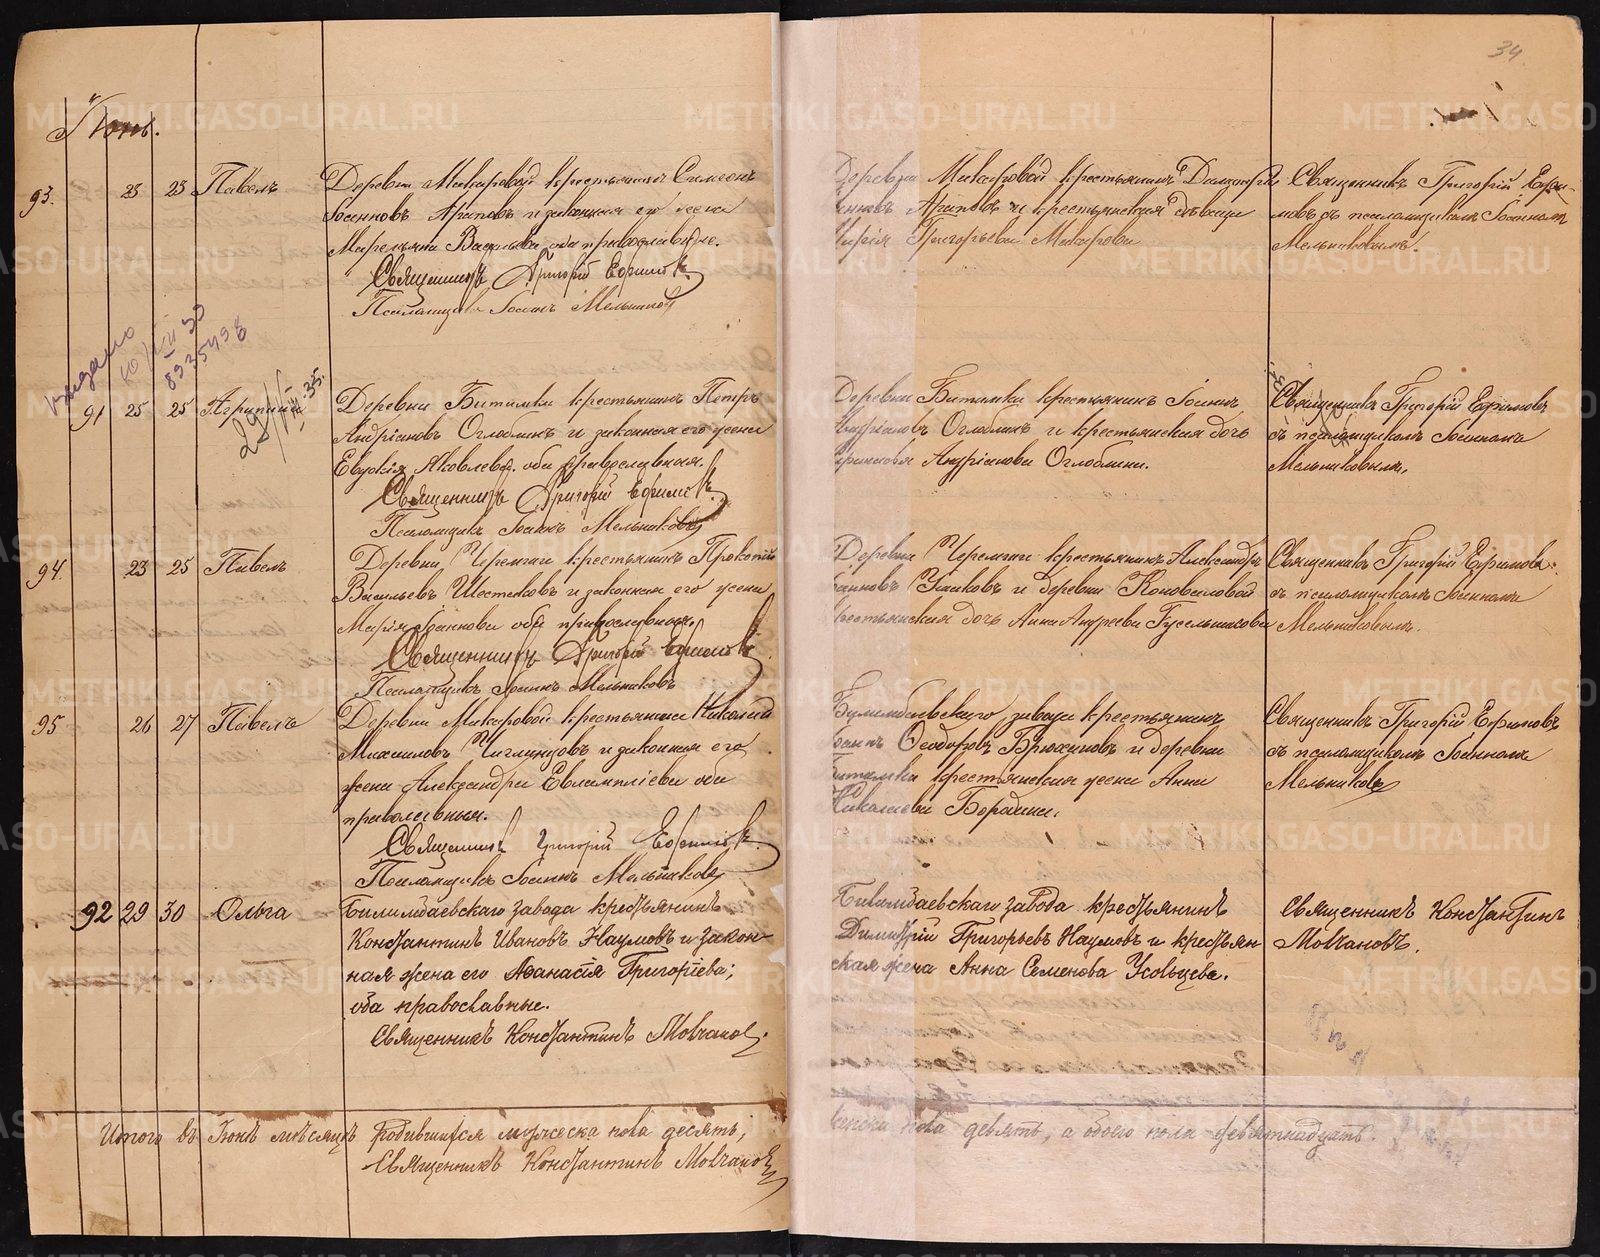 34
Іюнь.
93. 23 23 Павелъ
Деревни Макаровой крестьянинъ Симеонъ
Іоанновъ Араповъ и законная его жена
Васильева, оба православные.
Священникъ Григорій Ефимовъ
Псаломщикъ Іоаннъ Мельниковъ
Деревни Макаровой крестьянинъ
Араповъ и крестьянская дѣвица
Марія Григорьева Макарова
Священникъ Григорій Ефи-
мовъ съ псаломщикомъ Іоанномъ
Мельниковымъ.
выдано
8935498
29/VI-35.
91 25 25 Агрипина
Деревни Битимки крестьянинъ Петръ
Андріановъ Оглоблинъ и законная его жена
Евдокія Яковлева, оба православные.
Священникъ Григорій Ефимовъ
Псаломщикъ Іоаннъ Мельниковъ
Деревни Битимки крестьянинъ Іоаннъ
Андріановъ Оглоблинъ и крестьянская дочь
Андріанова Оглоблина.
Священникъ Григорій Ефимовъ
съ псаломщикомъ Іоанномъ
Мельниковымъ.
94. 23 25 Павелъ
Деревни Черемши крестьянинъ Прокопій
Васильевъ Шестаковъ и законная его жена
Марія Іоаннова, оба православные.
Священникъ Григорій Ефимовъ
Псаломщикъ Іоаннъ Мельниковъ
Деревни Черемши крестьянинъ Александръ
Іоанновъ Ушаковъ и деревни Коноваловой
крестьянская дочь Анна Андреева Гусельникова
Священникъ Григорій Ефимовъ
съ псаломщикомъ Іоанномъ
Мельниковымъ.
95 26 27 Павелъ
Деревни Макаровой крестьянинъ Николай
Михаиловъ Чиглинцовъ и законная его
жена Александра Евлампліева оба
православные.
Священникъ Григорій Ефимовъ
Псаломщикъ Іоаннъ Мельниковъ
Билимбаевскаго завода крестьянинъ
Іоаннъ Ѳеодоровъ Брюхановъ и деревни
Битимки крестьянская жена Анна
Николаева Бородина.
Священникъ Григорій Ефимовъ
съ псаломщикомъ Іоанномъ
Мельниковъ
92 29 30 Ольга
Билимбаевскаго завода крестьянинъ
Константинъ Ивановъ Наумовъ и закон-
ная жена его Аѳанасія Григоріева;
оба православные.
Священникъ Константинъ Молчановъ.
Билимбаевскаго завода крестьянинъ
Димитрій Григорьевъ Наумовъ и крестьян
ская жена Анна Семенова Усольцева.
Священникъ Константинъ
Молчановъ.
Итого въ Іюнѣ мѣсяцѣ родившихся мужеска пола десять,
женска пола девять, а обоего пола девятнадцать.
Священникъ Константинъ Молчановъ
METRIKI.GASO-URAL.RU